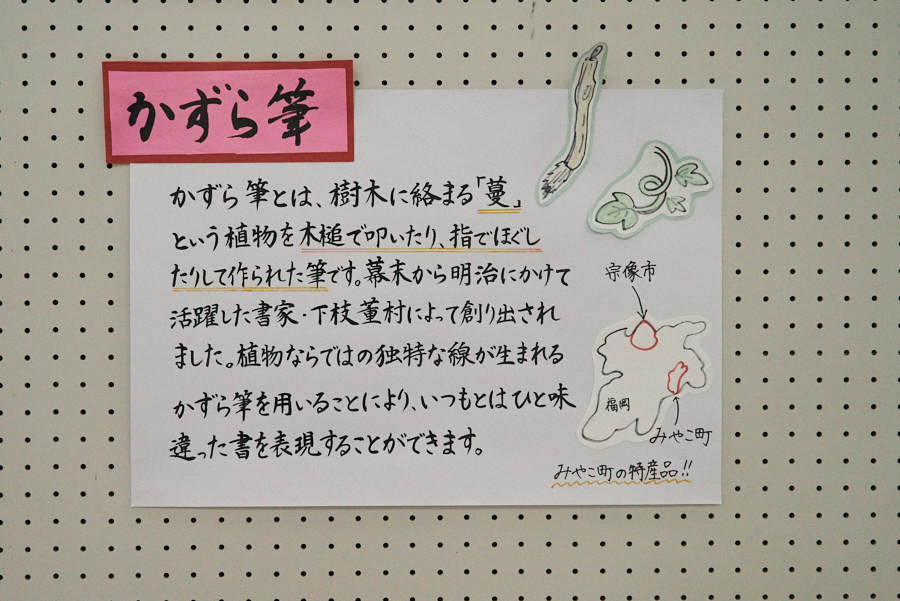 かずら筆
かずら筆とは、樹木に絡まる「蔓」
という植物を木槌で叩いたり、指でほぐし
たりして作られた筆です。幕末から明治にかけて
活躍した書家・下枝董村によって創り出され
ました。植物ならではの独特な線が生まれる
かずら筆を用いることにより、いつもとはひと味
違った書を表現することができます。
宗像市
福岡
みやこ町
みやこ町の特産品!!